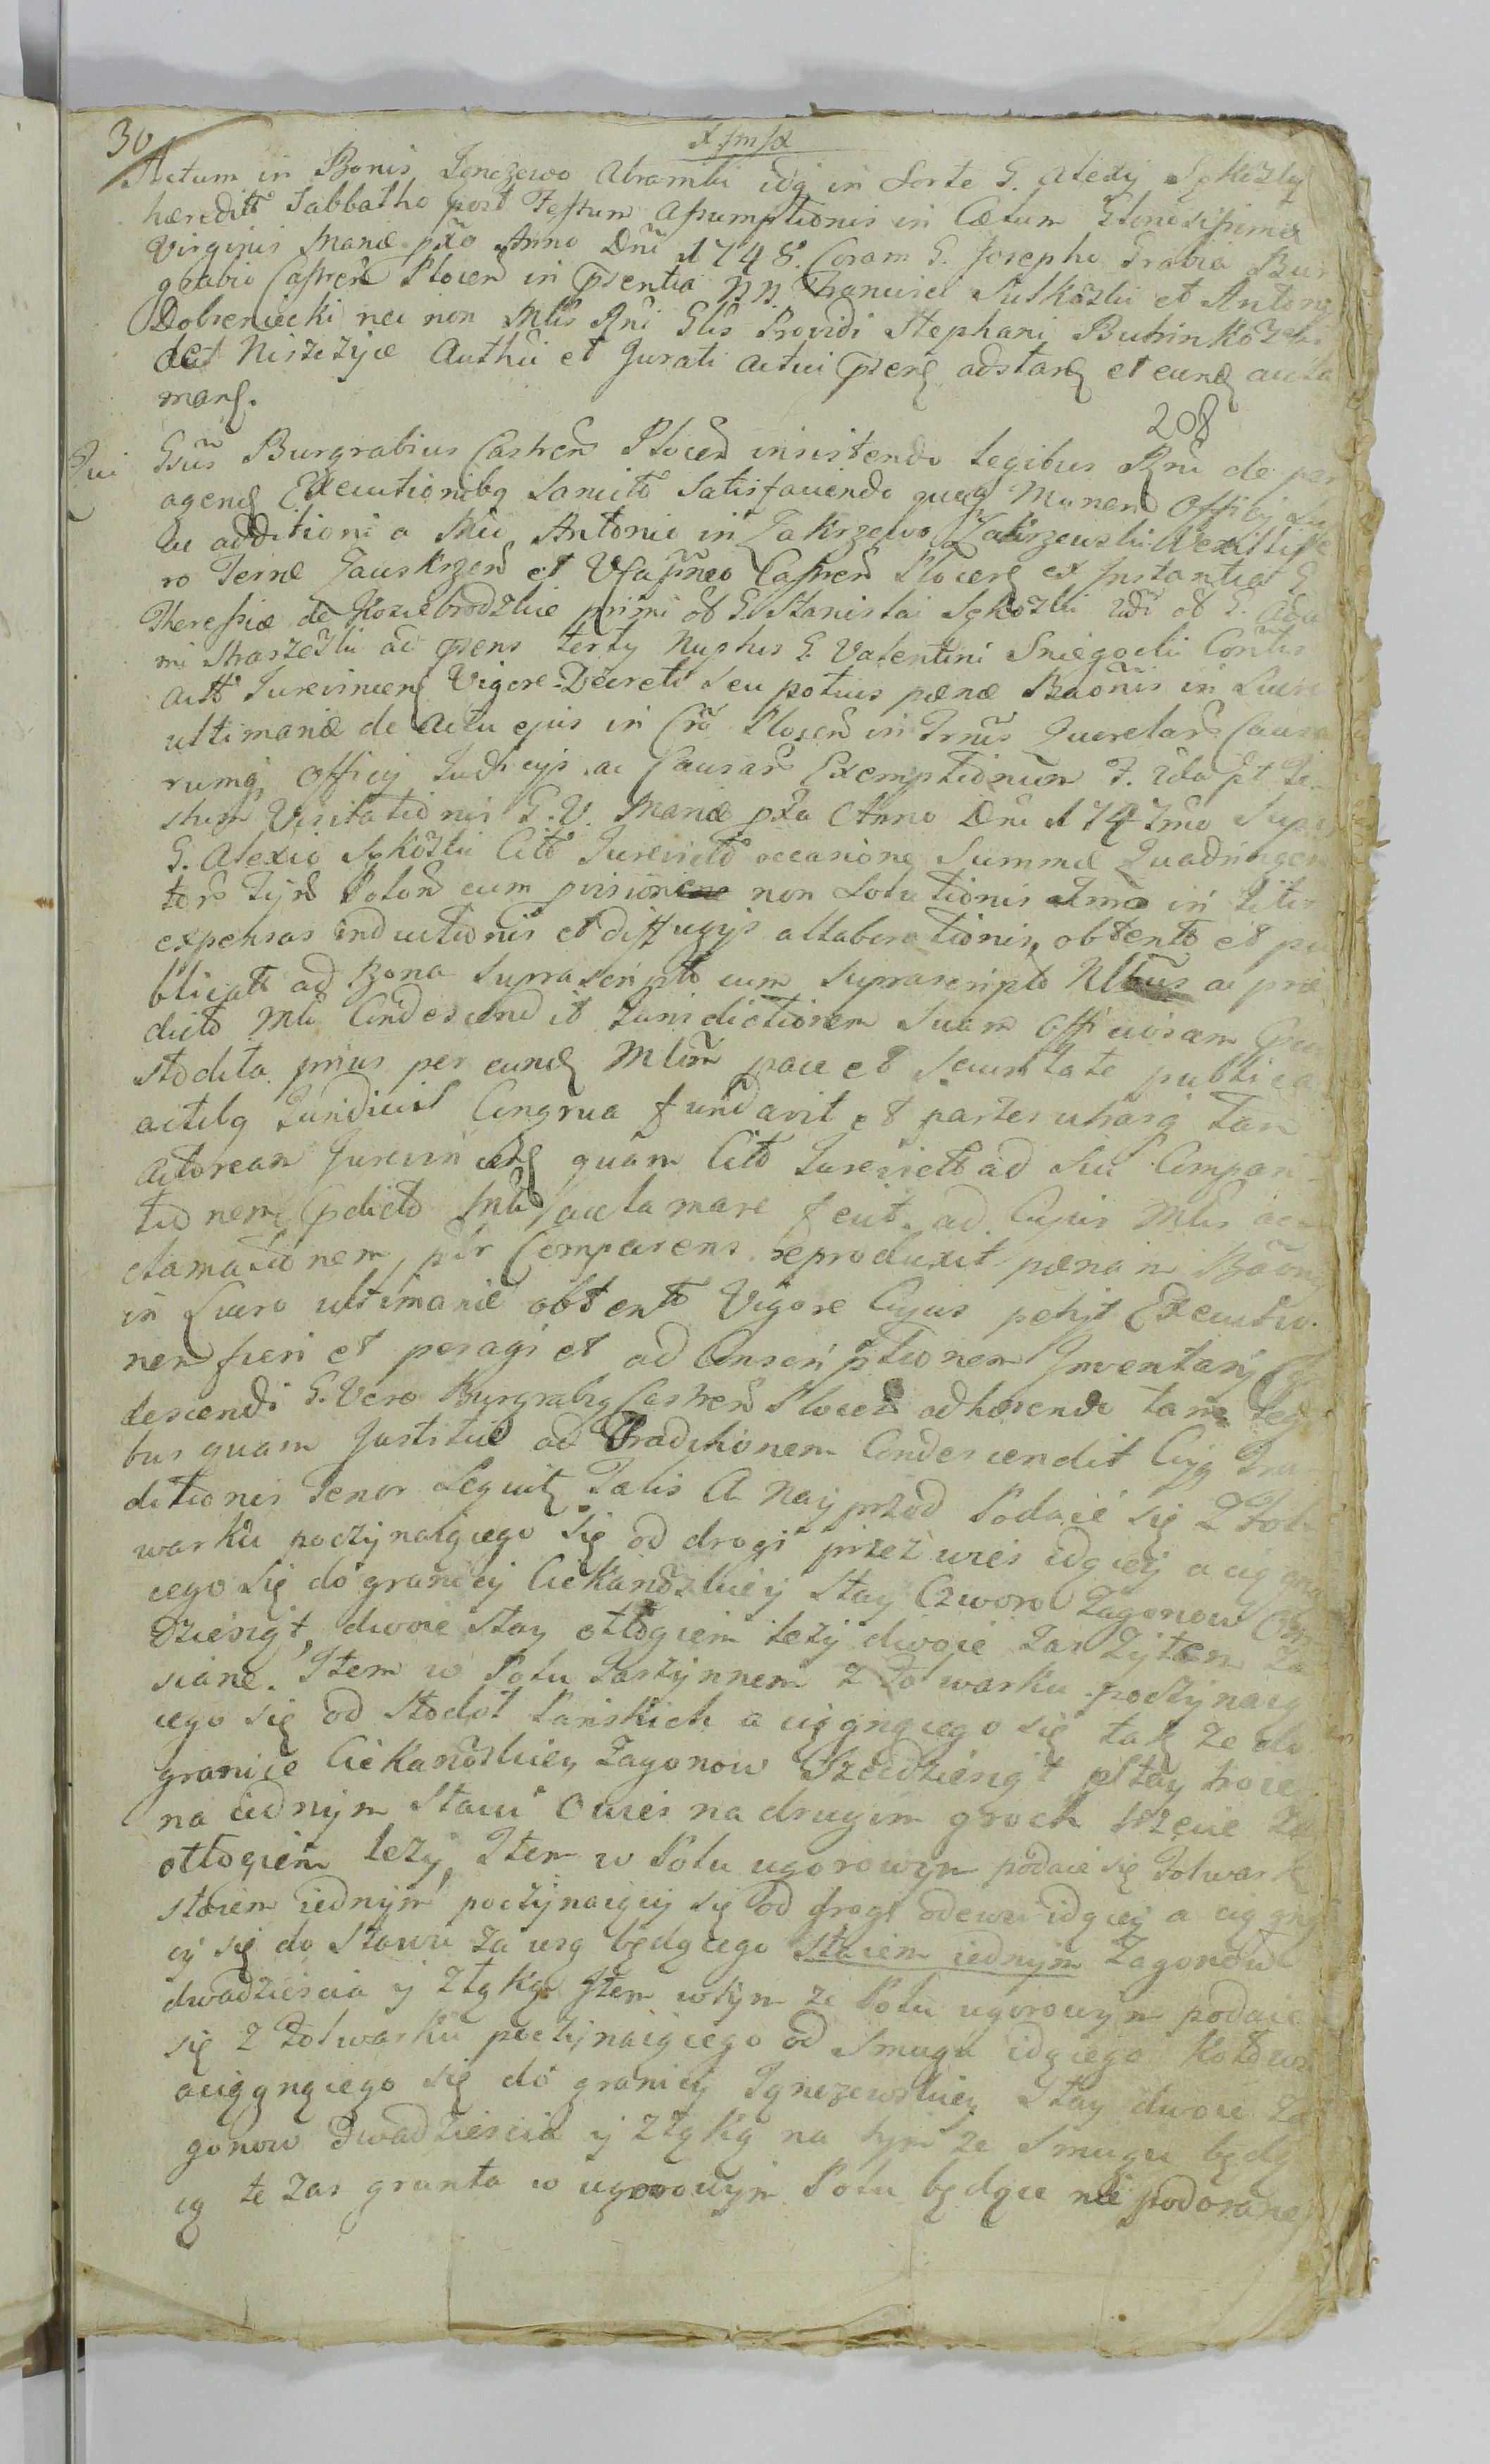 30
Actum in Bonis Ignczewo Abramki idq in Sorte G. Alexij Sękoski
hæreditt Sabbatho post Festum Assumptionis in Cœlum Gloriosissimæ
Virginis Mariæ pxo Anno Dni 1748. Coram G. Josepho Grabia Bur
grabio Castren Plocen in Psentia NN. Francisci Sulkoski et Antonij
Dobreniecki nec non Mlis Rni Glis Providi Stephani
de Niszczyce Authci et Jurati actui psenſ adstanſ et eund accla
manſ.
208
Qui Gsus Burgrabius Castren Plocen insistendo legibus Rni de per
agenſ Executionibq Sancitt Satisfaciendo quoq Muneri Officij Su
ac additioni a Mco Antonio in Zakrzewo Zakrzewski Vexillife
ro Terræ Zauskrzen et Castren Plocenſ ex Instantia G.
Theressiæ de Koziebrodzkie primi ob G. Stanislai Sękoski 2di ob G. Ada
mi ac psens tertij Nuptus G. Valentini Sniegocki Contis
actt Jurevincenſ Vigore Decreti seu potius pænæ Baonis in Lucro
ultimariæ de Actu ejus in Crō Plocen in Trnis Querelarſ Causa
rumq Officij Judicijs ac Causarſ Exemptionum F. 2da pt Fe
stum Visitationis G. V. Mariæ pxa Anno Dni 1747mo Super
G. Alexio Sękoski Citto Jurevictto occasione Summæ Quadringen
torſ Tijnſ Polonſ cum pvisione non Solutionis in
expensas inductionis et diffugijs allaborationis, obtentt et pu
blicatt ad Bona Suprascriptt cum Suprascriptt ac præ
dicto Mli Condescendit Jurisdictionem Suam Officiosam Cu
stodita prius per eundſ Mlem pace et Securitate publica
actibq Juridicis Congrua fundavit et partes utrasq tam
Actoream Jurevincenſ quam Citt Jurevictt ad sui Compari
tionem pdictt Mli acclamare fecit. ad Cujus Mlis ac
clamationem, ptr Comparens reproduxit pænam Baonis
in Lucro ultimariæ obtentt Vigore Cujus petijt Executio
nem fieri et peragi et ad Conscriptionem Inventarij Con
descendi G. Vero Burgrabiq Castren Plocen adhærendo tam legi
bus quam Justitiæ ad Traditionem Condescendit Cujq Tra
ditionis Tenor Sequitſ Talis A Nayprzod Podaie się Z Fol
warku poczynaiącego się od drogi przez wies idącej a ciągną
cego się do granicy Ciekanoskiey Stay Czworo Zagonow Ośm
dziesiąt, dwoie Stay otłogiem leży dwoie zas żytem za
siane. Item w Polu Jarzynnem z Folwarku poczynaią
cego się od Stodoł Pańskich a ciągnącego się tak że do
granice Ciekanoskiey Zagonow Szećdziesiąt Stay troie
na iednym Staiu Owies na drugim groch trzecie Za
otłogiem leży, Item w Polu ugorowym podaie się Folwark
staiem iednym poczynaiący się od drogi odewsi idącey a ciągną
cy się do Stawu za wsą będącego staiem iednym Zagonow
dwadzieścia y z łąką Item wtym że Polu ugorowym podaie
się z Folwarku poczynaiącego od Smugu idącego
aciągnącego się do granicy Ignczewskiey Stay dwoie Za
gonow Dwadzieścia y z łąką na tym że Smugu będą
cą te zas grunta w ugorowym Polu będące nie podorane